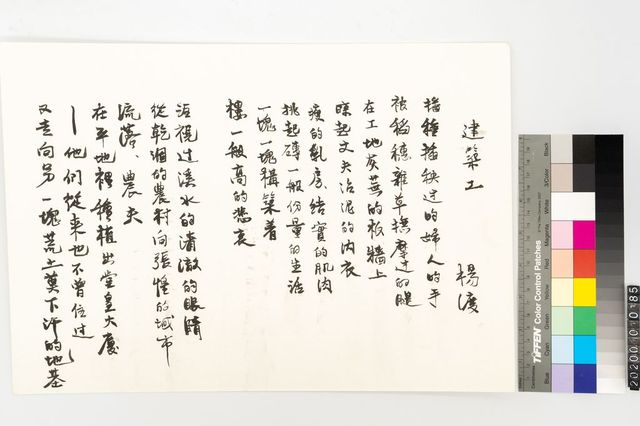 建築工
楊渡
播種插秧過的婦人的手
被稻穗雜草撫摩過的腿
在工地荒蕪的板牆上
晾起丈夫沾泥的內衣
瘦的乳房、結實的肌肉
挑起磚一般份量的生活
一塊一塊構築着
樓一般高的悲哀
注視過溪水的清澈的眼睛
從乾涸的農村向張惶的城市
流落、農夫
在平地裡種植出堂皇大廈
—他們從來也不曾住過
又走向另一塊荒土奠下汗的地基
Black
3/Color
White
Magenta
Red
Yellow
Green
Cyan
Blue
TIFFEN Color Control Patches
20200 10 10:85